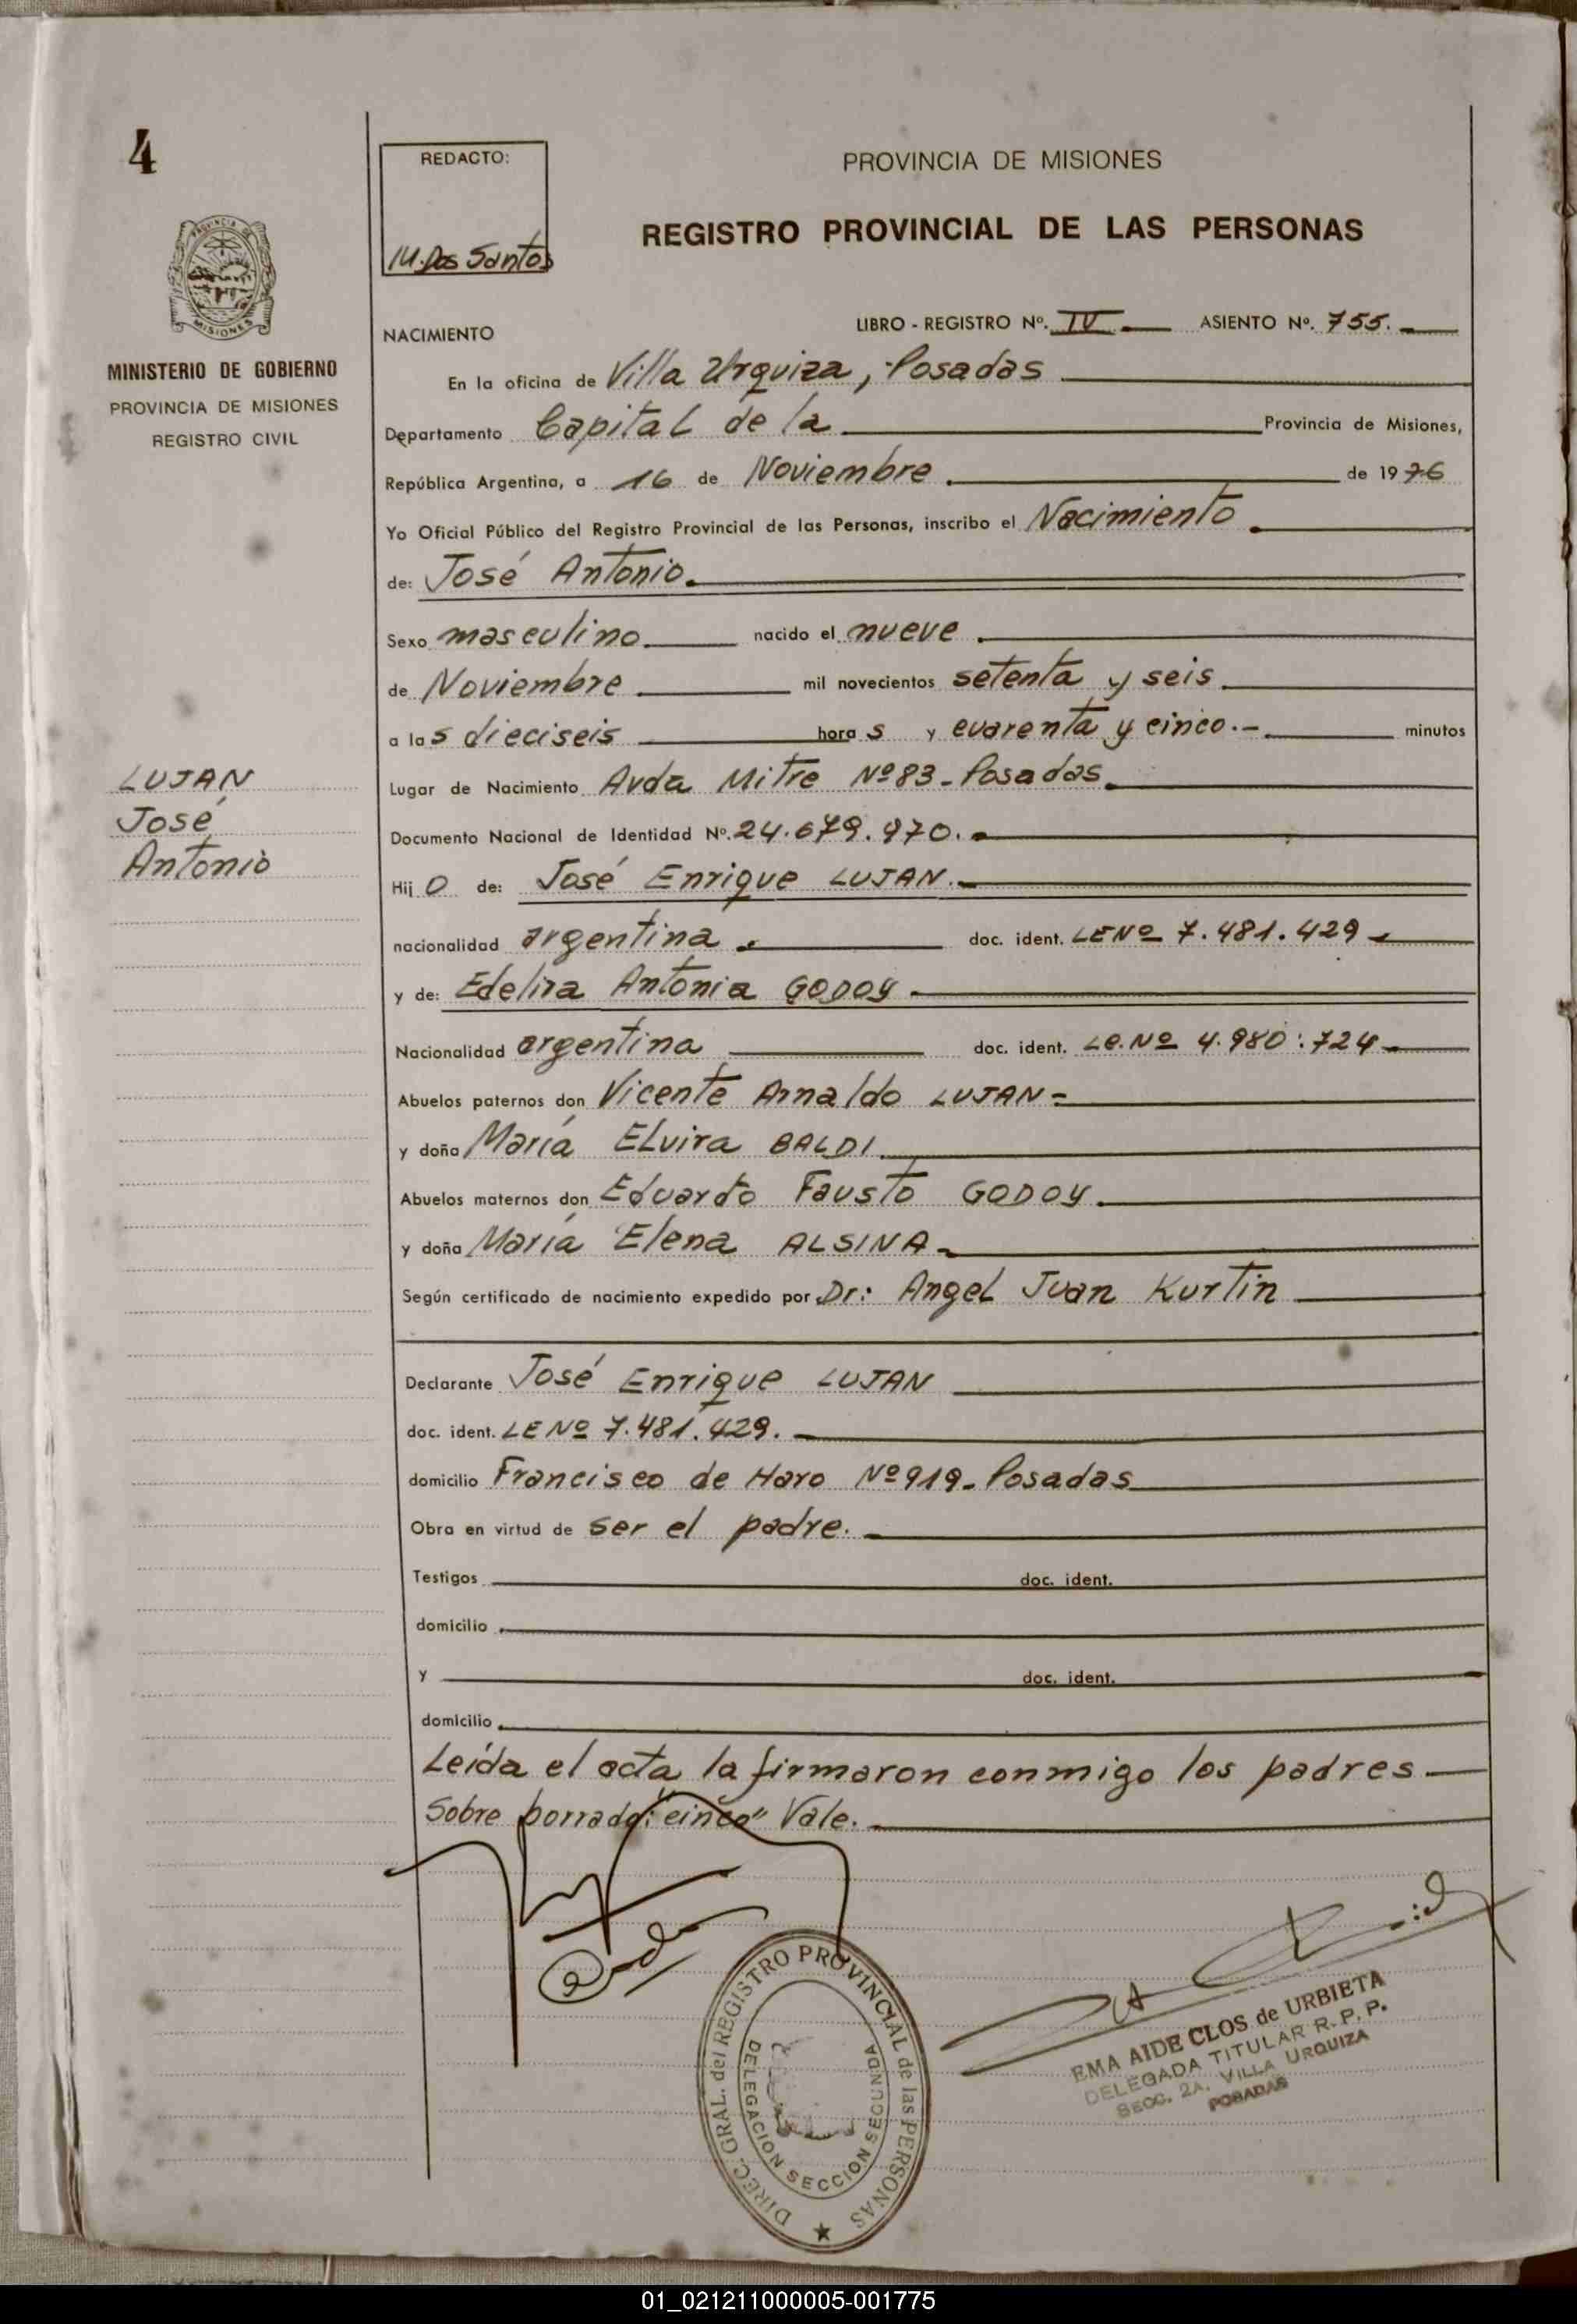 4
REDACTO:
M. Dos Santos
PROVINCIA DE MISIONES
REGISTRO PROVINCIAL DE LAS PERSONAS
PROVINCIA DE
MISIONES
MINISTERIO DE GOBIERNO
PROVINCIA DE MISIONES
REGISTRO CIVIL
NACIMIENTO
LIBRO - REGISTRO Nº. IV. ASIENTO Nº. 755.
En la oficina de Villa Urquiza, Posadas
Departamento Capital de la Provincia de Misiones,
República Argentina, a 16 de Noviembre de 1976
Yo Oficial Público del Registro Provincial de las Personas, inscribo el Nacimiento
de: José Antonio.
Sexo masculino nacido el nueve
de Noviembre mil novecientos setenta y seis
a las dieciseis horas y cuarenta y cinco.- minutos
Lugar de Nacimiento Avda Mitre Nº 83 - Posadas
LUJAN
José
Antonio
Documento Nacional de Identidad Nº. 24.679.970.
Hijo de: José Enrique LUJAN.
nacionalidad argentina. doc. ident. LE Nº 7.481.429
y de: Edelira Antonia GODOY
Nacionalidad argentina doc. ident. LC. Nº 4.980.724
Abuelos paternos don Vicente Arnaldo LUJAN
y doña María Elvira BALDI
Abuelos maternos don Eduardo Fausto GODOY
y doña María Elena ALSINA
Según certificado de nacimiento expedido por Dr: Angel Juan Kurtin
Declarante José Enrique LUJAN
doc. ident. LE Nº 7.481.429.
domicilio Francisco de Haro Nº 919 - Posadas
Obra en virtud de ser el padre.
Testigos doc. ident.
domicilio
y doc. ident.
domicilio
Leída el acta la firmaron conmigo los padres
Sobre borrado: "cinco" Vale.
DIREC. GRAL. del REGISTRO PROVINCIAL de las PERSONAS
DELEGACION SECCION SEGUNDA
EMA AIDE CLOS de URBIETA
DELEGADA TITULAR R. P. P.
SECC. 2A. VILLA URQUIZA
POSADAS
01_021211000005-001775